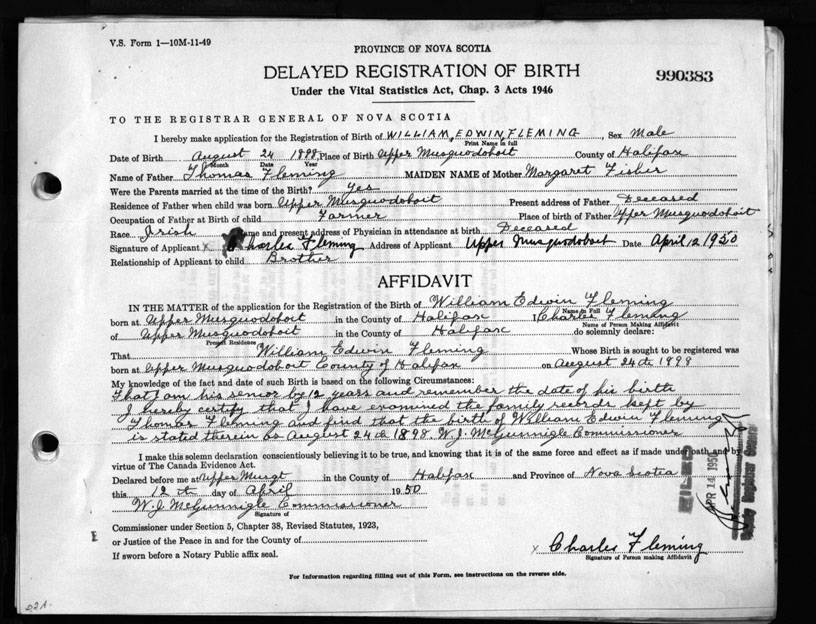 V.S. Form 1—10M-11-49
PROVINCE OF NOVA SCOTIA
DELAYED REGISTRATION OF BIRTH
990383
Under the Vital Statistics Act, Chap. 3 Acts 1946
TO THE REGISTRAR GENERAL OF NOVA SCOTIA
I hereby make application for the Registration of Birth of WILLIAM, EDWIN, FLEMING, Sex Male
Print Name in full
Date of Birth August 24 1898 Place of Birth Upper Musquodoboit County of Halifax
Month Date Year
Name of Father Thomas Fleming MAIDEN NAME of Mother Margaret Fisher
Were the Parents married at the time of the Birth? Yes
Residence of Father when child was born Upper Musquodoboit Present address of Father Deceased
Occupation of Father at Birth of child Farmer Place of birth of Father Upper Musquodoboit
Race Irish and present address of Physician in attendance at birth Deceased
Signature of Applicant x Charles Fleming Address of Applicant Upper Musquodoboit Date April 12 1950
Relationship of Applicant to child Brother
AFFIDAVIT
IN THE MATTER of the application for the Registration of the Birth of William Edwin Fleming
Name in Full
born at Upper Musquodoboit in the County of Halifax I Charles Fleming
Name of Person Making Affidavit
of Upper Musquodoboit in the County of Halifax do solemnly declare:
Present Residence
That William Edwin Fleming Whose Birth is sought to be registered was
born at Upper Musquodoboit County of Halifax on August 24th 1898
My knowledge of the fact and date of such Birth is based on the following Circumstances:
That I am his senior by 12 years and remember the date of his birth
I hereby certify that I have examined the family records kept by
Thomas Fleming and find that the birth of William Edwin Fleming
is stated therein as August 24th 1898 W. J. McGunnigle Commissioner
I make this solemn declaration conscientiously believing it to be true, and knowing that it is of the same force and effect as if made under oath and by
virtue of The Canada Evidence Act.
Declared before me at Upper Musqt in the County of Halifax and Province of Nova Scotia
this 12th day of April 1950
W. J. McGunnigle Commissioner
Signature of
APR 14 1950
Commissioner under Section 5, Chapter 38, Revised Statutes, 1923,
or Justice of the Peace in and for the County of
If sworn before a Notary Public affix seal.
x Charles Fleming
Signature of Person making Affidavit
For Information regarding filling out of this Form, see instructions on the reverse side.